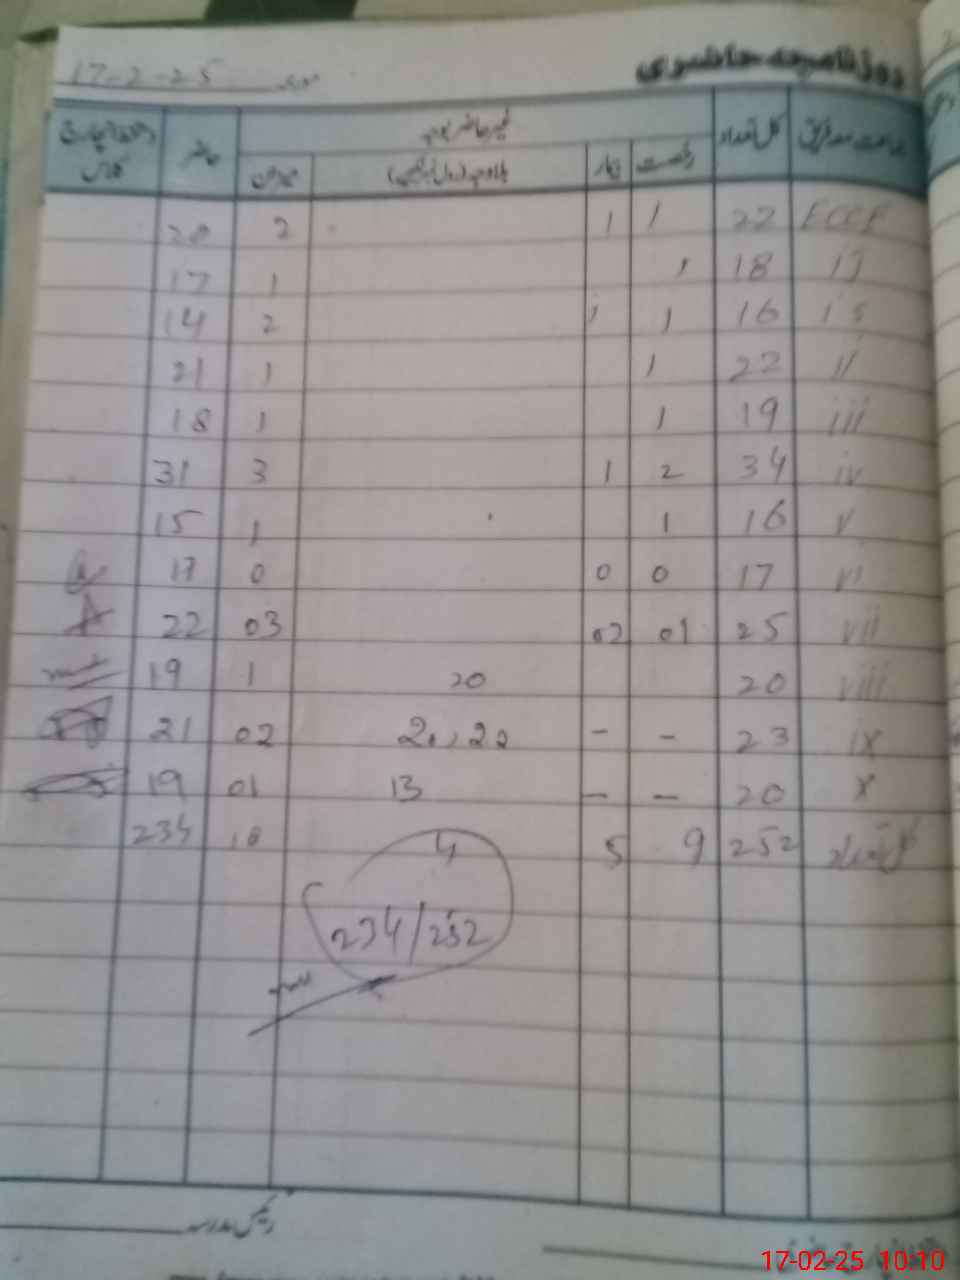 روزنامچہ حاضری
مورخہ 17-2-25
جماعت معہ فریق کل تعداد غیر حاضر بوجہ حاضر دستخط انچارج کلاس
رخصت بیمار بلاوجہ (رول نمبر لکھیں) میزان
ECCE 22 1 1 2 20
18 1 1 17
16 1 1 2 14
ii 22 1 1 21
iii 19 1 1 18
iv 34 2 1 3 31
v 16 1 1 15
vi 17 0 0 0 17
vii 25 01 02 03 22
viii 20 20 1 19
ix 23 - - 02 21
x 20 - - 13 01 19
کل تعداد 252 9 5 4 18 234
234/252
رئیس مدرسہ
17-02-25 10:10